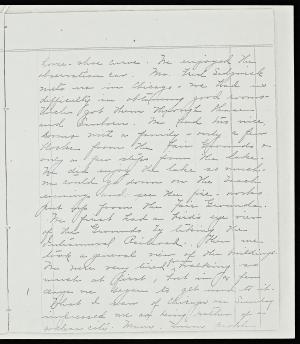 horse-shoe curve. We enjoyed the
observation car. Mr. Fred Sedgwick
met us in Chicago. We had no
difficulty in obtaining good rooms
Theo. got them through
and We had two nice
rooms with a family & only a few
blocks from the Fair Grounds &
only a few steps from the Lake.
We did enjoy the lake so much.
We could go down on the beach
evenings and see the fire-works
put up from the Fair Grounds.
We first had a bird's eye view
of the Grounds by taking the
Intramural Railroad. Then we
took a general view of the buildings.
We were very tired walking so
much at first but in a few
days we began to get used to it.
What I saw of Chicago on Sunday
impressed me as being rather of a
wicked city.